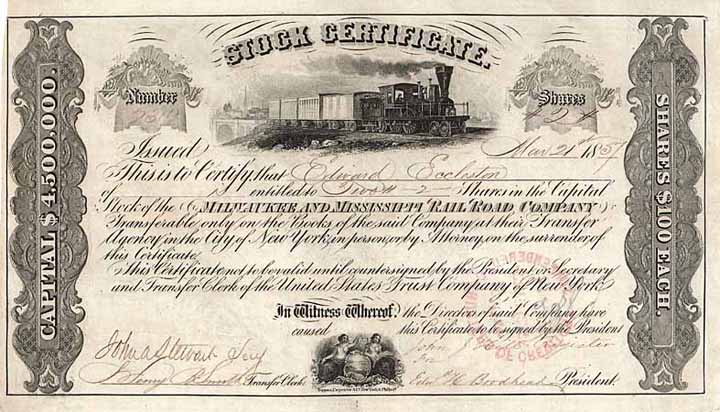 STOCK CERTIFICATE.
Number
Shares
CAPITAL $4,500,000.
SHARES $100 EACH.
Issued Mar 21st 1857
This is to Certify that Edward Eccleston
of is entitled to Two - 2 - Shares in the Capital
Stock of the MILWAUKEE AND MISSISSIPPI RAIL ROAD COMPANY
Transferable only on the Books of the said Company at their Transfer
Agency in the City of New York, in person, or by Attorney, on the surrender of
this Certificate.
This Certificate not to be valid until countersigned by the President or Secretary
and Transfer Clerk of the United States Trust Company of New York
In Witness Whereof, the Directors of said Company have
caused this Certificate to be signed by the President
John A Stewart Secy
Transfer Clerk
John
Edw H Brodhead President.